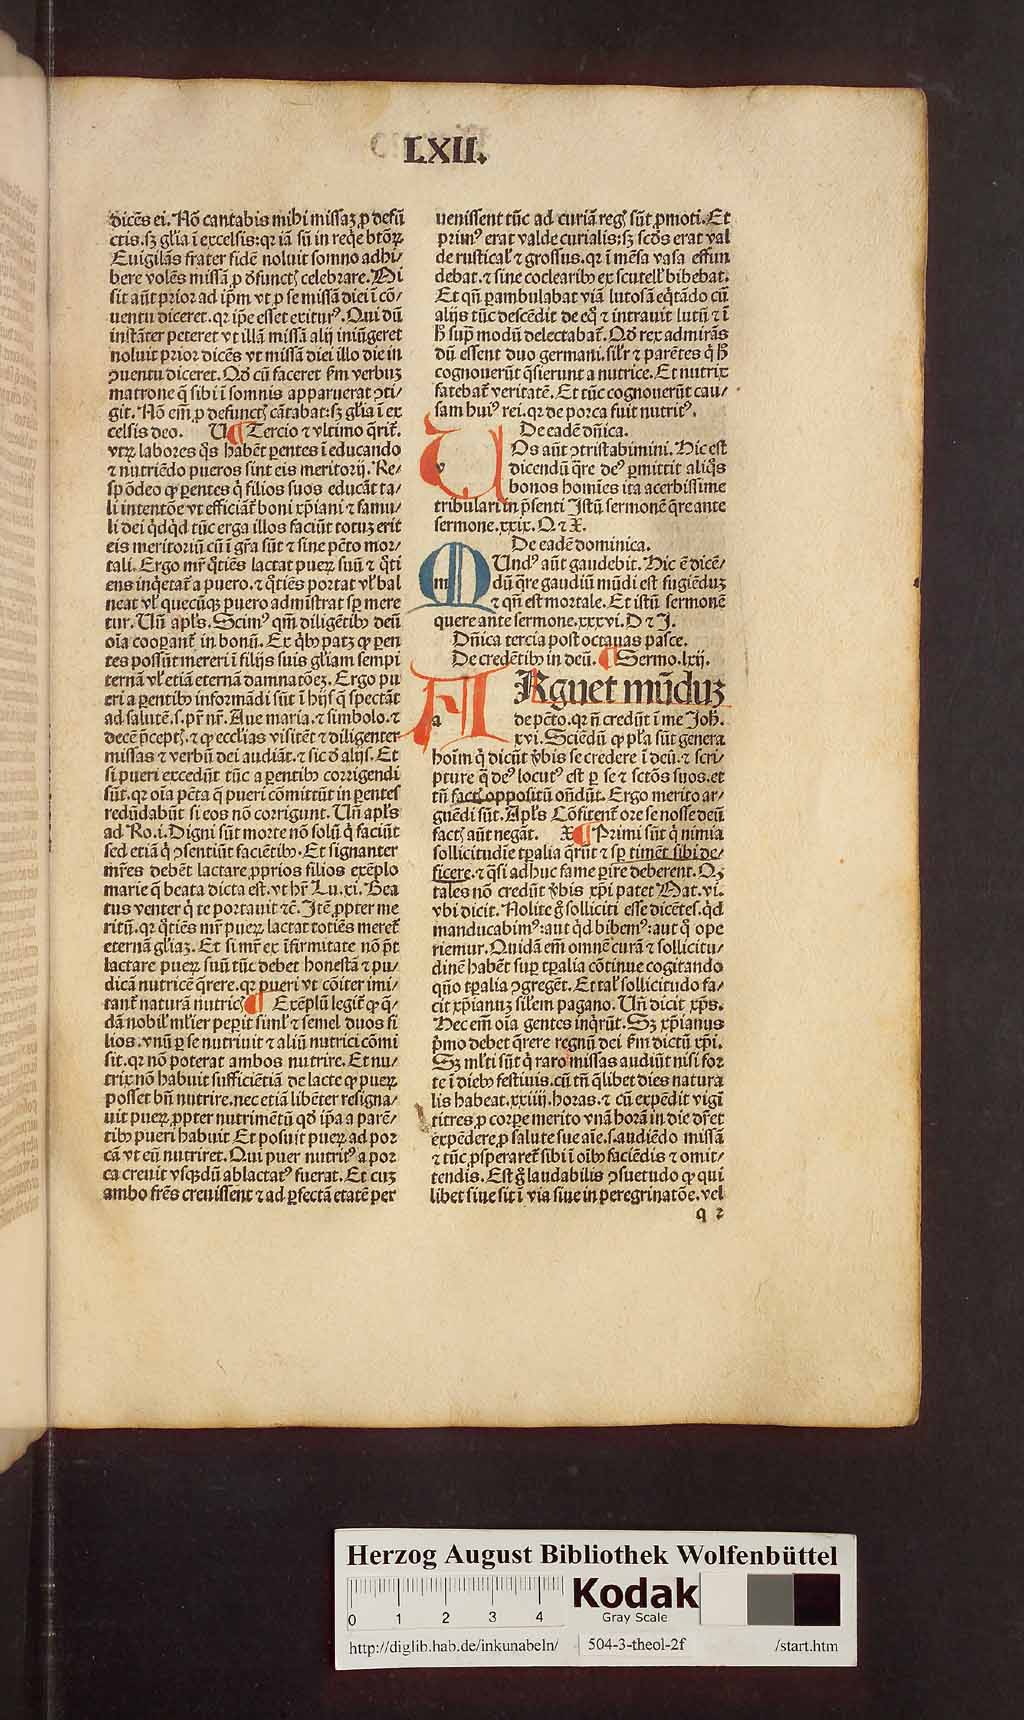 LXII.
dicēs ei. Nō cantabis mihi missaꝫ ꝓ defū
ctis. sꝫ gl̄ia ī excelsis: qꝛ iā sū in req̄e btōꝝ
Euigilās frater fidē noluit somno adhi/
bere volēs missā ꝓ defunct celebrare. Ni
sit aūt prior ad ip̄m vt ꝓ se missā diei ī cō/
uentu diceret. qꝛ ip̄e esset exiturꝰ. Qui dū
instāter peteret vt illā missā alij iniūgeret
noluit prior dicēs vt missā diei illo die in
ꝯuentu diceret. Qd̄ cū faceret ẜm verbuꝫ
matrone q̄ sibi ī somnis apparuerat ꝯti/
git. Nō em̄ ꝓ defunct cātabat: sꝫ gl̄ia ī ex
celsis deo. V ¶ Tercio ⁊ vltimo q̄rit̄.
vtꝝ labores qͦs habēt ꝑentes ī educando
⁊ nutriēdo pueros sint eis meritorij. Re/
sp ōdeo ꝙ ꝑentes q̇ filios suos educāt ta/
li intentōe vt efficiāt boni xp̄iani ⁊ famu/
li dei q̇dq̇d tūc erga illos faciūt totuꝫ erit
eis meritoriū cū ī gr̄a sūt ⁊ sine pctō mor/
tali. Ergo mr̄ q̇tiēs lactat pueꝝ suū ⁊ q̇ti
ens inq̇etat̄ a puero. ⁊ q̇tiēs portat vl̓ bal
neat vl̓ quecūqꝫ puero administrat sp̄ mere
tur. Un̄ apl̓s. Scimꝰ qm̄ diligētibꝰ deū
oīa coopant̄ in bonū. Ex q̇bꝰ patꝫ ꝙ ꝑen
tes possūt mereri ī filijs suis gl̄iam sempi
ternā vl̓ etiā eternā damnatōeꝫ. Ergo pu
eri a ꝑentibꝰ informādi sūt ī hijs q̄ spectāt
ad salutē. s. pr̄ nr̄. Aue maria. ⁊ simbolo. ⁊
decē p̄cept. ⁊ ꝙ eccl̓ias visitēt ⁊ diligenter
missas ⁊ verbū dei audiāt. ⁊ sic d̄ alijs. Et
si pueri excedūt tūc a ꝑentibꝰ corrigendi
sūt. qꝛ oīa pctā q̄ pueri cōmittūt in ꝑentes
redūdabūt si eos nō corrigunt. Un̄ apl̓s
ad Ro. i. Digni sūt morte nō solū q̇ faciūt
sed etiā q̇ ꝯsentiūt faciētibꝰ. Et signanter
mr̄es debēt lactare ꝓprios filios exēplo
marie q̄ beata dicta est. vt hr̄ Lu. xi. Bea
tus venter q̇ te portauit ⁊c̄. Itē ꝓpter me
ritū. qꝛ q̇tiēs mr̄ pueꝝ lactat totiēs meret̄
eternā gl̄iaꝫ. Et si mr̄ ex īfirmitate nō p̄t
lactare pueꝝ suū tūc debet honestā ⁊ pu/
dicā nutricē q̄rere. qꝛ pueri vt cōiter imi/
tant̄ naturā nutric ¶ Exēplū legit̄ ꝙ q̄/
dā nobil̓ ml̓ier peꝑit siml̓ ⁊ semel duos fi
lios. vnū ꝑ se nutriuit ⁊ aliū nutrici cōmi
sit. qꝛ nō poterat ambos nutrire. Et nu/
trix nō habuit sufficiētiā de lacte ꝙ pueꝝ
posset bn̄ nutrire. nec etiā libēter resigna/
uit pueꝝ ꝓpter nutrimētū qd̄ ip̄a a parē/
tibꝰ pueri habuit Et posuit pueꝝ ad por
cā vt eū nutriret. Qui puer nutritꝰ a por
ca creuit vsqꝫdū ablactatꝰ fuerat. Et cuꝫ
ambo fr̄es creuissent ⁊ ad ꝑfectā etatē per
uenissent tūc ad curiā reg sūt ꝓmoti. Et
primꝰ erat valde curialis: sꝫ scd̄s erat val
de rustical̓ ⁊ grossus. qꝛ ī mēsa vasa effun
debat. ⁊ sine coclearibꝰ ex scutell̓ bibebat.
Et qn̄ ꝑambulabat viā lutosā eq̇tādo cū
alijs tūc descēdit de eq̇ ⁊ intrauit lutū ⁊ ī
hͦ supͣ modū delectabat̄. Qd̄ rex admirās
dū essent duo germani. sil̓r ⁊ parētes q̇ hͦ
cognouerūt q̄sierunt a nutrice. Et nutrix
fatebat̄ veritatē. Et tūc cognouerūt cau/
sam huiꝰ rei. qꝛ de porca fuit nutritꝰ.
De eadē dn̄ica.
v
Os aūt ꝯtristabimini. Hic est
dicendū q̄re deꝰ ꝑmittit aliq̇s
bonos homīes ita acerbissime
tribulari in p̄senti Istū sermonē q̄re ante
sermone. xxix. Q ⁊ X.
De eadē dominica.
m
Undꝰ aūt gaudebit. Hic ē dicē/
dū q̄re gaudiū mūdi est fugiēduꝫ
⁊ qn̄ est mortale. Et istū sermonē
quere ante sermone. xxxvi. D ⁊ J.
Dn̄ica tercia post octauas pasce.
De credētibꝰ in deū. ¶ Sermo. lxij.
a
Rguet mūduꝫ
de pctō. qꝛ n̄ credūt ī me Joh̄.
xvi. Sciēdū ꝙ pl̓a sūt genera
hoīm q̇ dicūt v̓bis se credere ī deū. ⁊ scri/
pture q̄ deꝰ locutꝰ est ꝑ se ⁊ sctōs suos. et
tn̄ fact oppositū on̄dūt. Ergo merito ar/
guēdi sūt. Apl̓s Cōfitent̄ ore se nosse deū
fact aūt negāt. X ¶ Primi sūt q̇ nimia
sollicitudīe tꝑalia q̄rūt ⁊ sp̄ timēt sibi de/
ficere. ⁊ q̄si adhuc fame ꝑire deberent. Qꝫ
tales nō credūt v̓bis xp̄i patet Mat. vi.
vbi dicit. Nolite gͦ solliciti esse dicētes. q̇d
manducabimꝰ: aut q̇d bibemꝰ: aut q̇ ope
riemur. Quidā em̄ omnē curā ⁊ sollicitu/
dinē habēt suꝑ tꝑalia cōtinue cogitando
qūo tꝑalia ꝯgregēt. Et tal̓ sollicitudo fa/
cit xp̄ianuꝫ sil̓em pagano. Un̄ dicit xp̄s.
Hec em̄ oīa gentes inq̇rūt. Sꝫ xp̄ianus
pͥmo debet q̄rere regnū dei ẜm dictū xp̄i.
Sꝫ ml̓ti sūt q̇ raro missas audiūt nisi for
te ī diebꝰ festiuis. cū tn̄ q̇libet dies natura
lis habeat. xxiiij. horas. ⁊ cū expēdit vigī
titres ꝓ corꝑe merito vnā horā in die dr̄et
expēdere ꝓ salute sue aīe. s. audiēdo missā
⁊ tūc ꝓsperaret̄ sibi ī oībꝰ faciēdis ⁊ omit/
tendis. Est gͦ laudabilis ꝯsuetudo ꝙ qui
libet siue sit ī via siue in peregrinatōe. vel
q 2
Herzog August Bibliothek Wolfenbüttel
0 1 2 3 4
Kodak
Gray Scale
http://diglib.hab.de/inkunabeln/ 504-3-theol-2f /start.htm